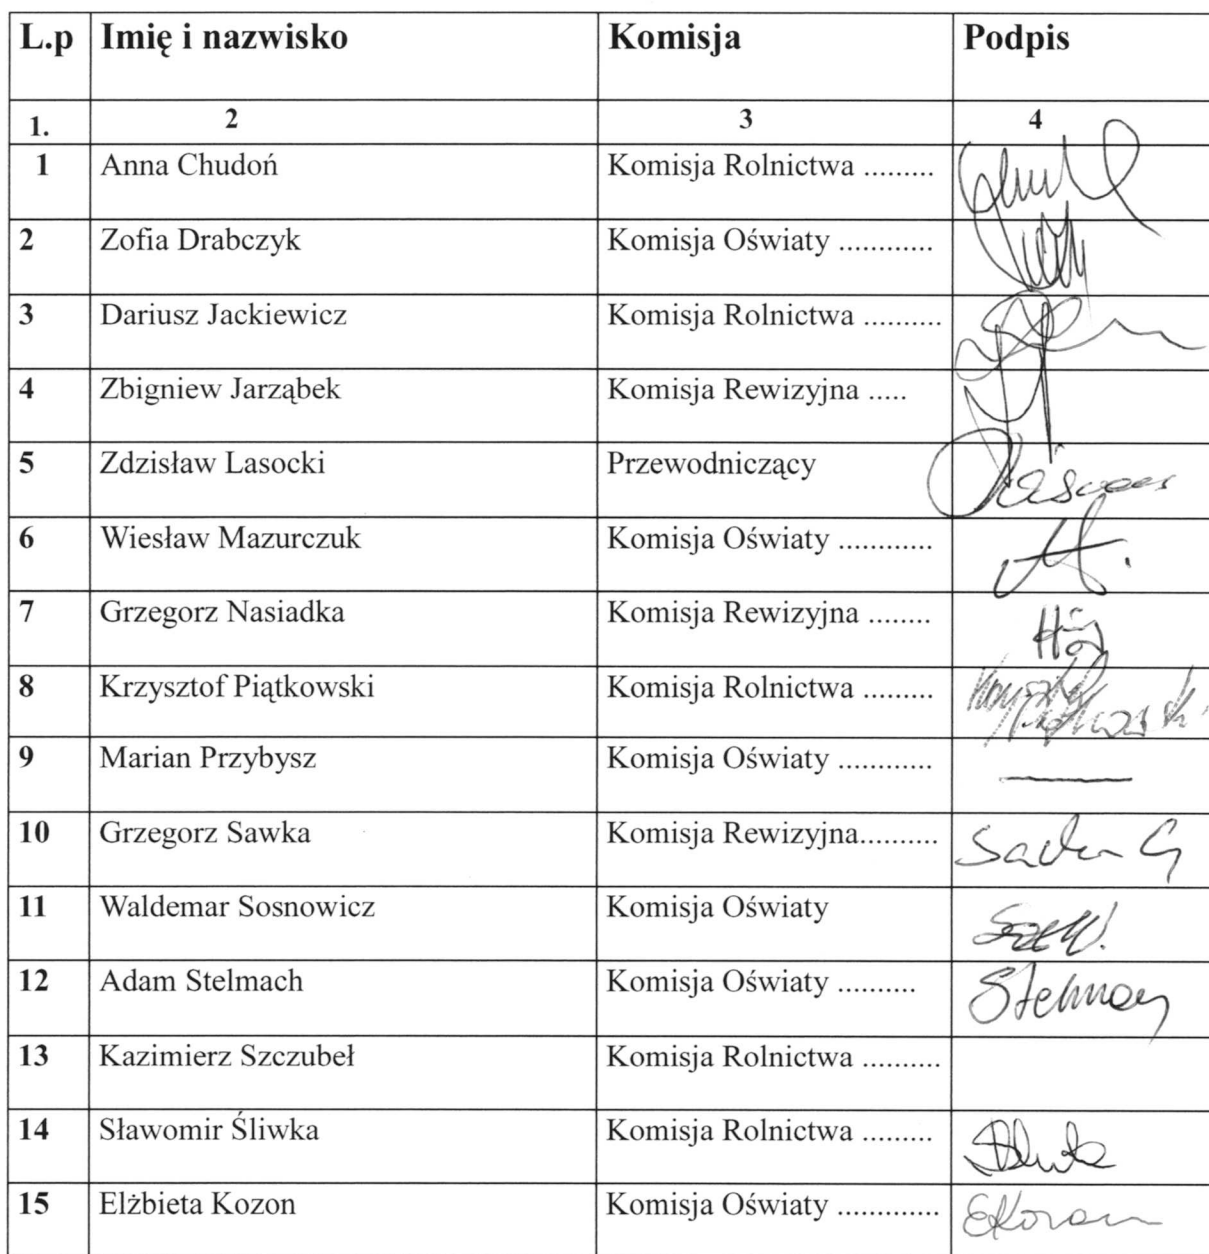 L.p Imię i nazwisko Komisja Podpis
1. 2 3 4
1 Anna Chudoń Komisja Rolnictwa .........
2 Zofia Drabczyk Komisja Oświaty ............
3 Dariusz Jackiewicz Komisja Rolnictwa ..........
4 Zbigniew Jarząbek Komisja Rewizyjna .....
5 Zdzisław Lasocki Przewodniczący
6 Wiesław Mazurczuk Komisja Oświaty ............
7 Grzegorz Nasiadka Komisja Rewizyjna ........
8 Krzysztof Piątkowski Komisja Rolnictwa .........
9 Marian Przybysz Komisja Oświaty ............ —
10 Grzegorz Sawka Komisja Rewizyjna..........
11 Waldemar Sosnowicz Komisja Oświaty
12 Adam Stelmach Komisja Oświaty ..........
13 Kazimierz Szczubeł Komisja Rolnictwa ..........
14 Sławomir Śliwka Komisja Rolnictwa .........
15 Elżbieta Kozon Komisja Oświaty .............